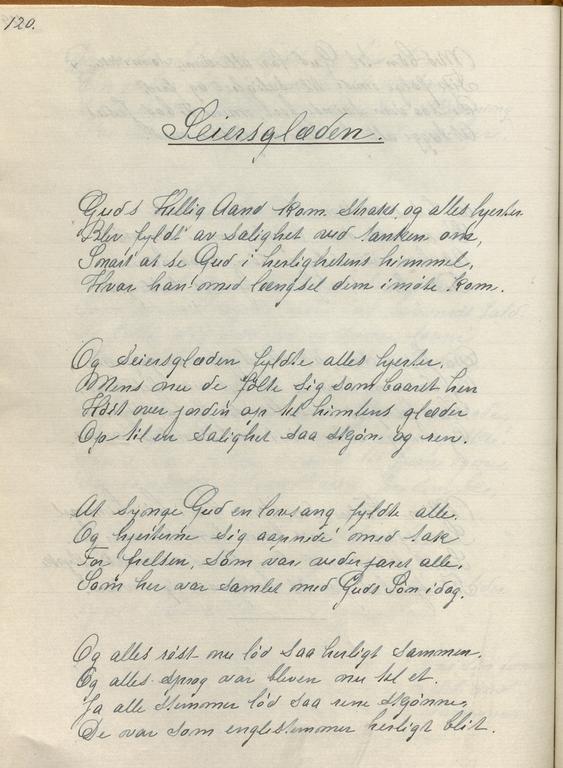 120.
Seiersglæden.
Guds Hellig Aand kom straks og alles hjerter
Blev fyldt av salighet ved tanken om,
Snart at se Gud i herlighetens himmel,
Hvor han med længsel dem imøte kom.
Og Seiersglæden fyldte alles hjerter,
Mens nu de følte sig som baaret hen
Høit over jorden op til himlens glæder
Op til en salighet saa skjøn og ren.
At synge Gud en lovsang fyldte alle.
Og hjerterne sig aapnede med tak
For frelsen, som var vederfaret alle.
Som her var samlet med Guds Søn idag.
Og alles røst nu lød saa herligt sammen.
Og alles sprog var bleven nu til et.
Ja alle stemmer lød saa rene skjønne,
De var som englestemmer herligt blit.